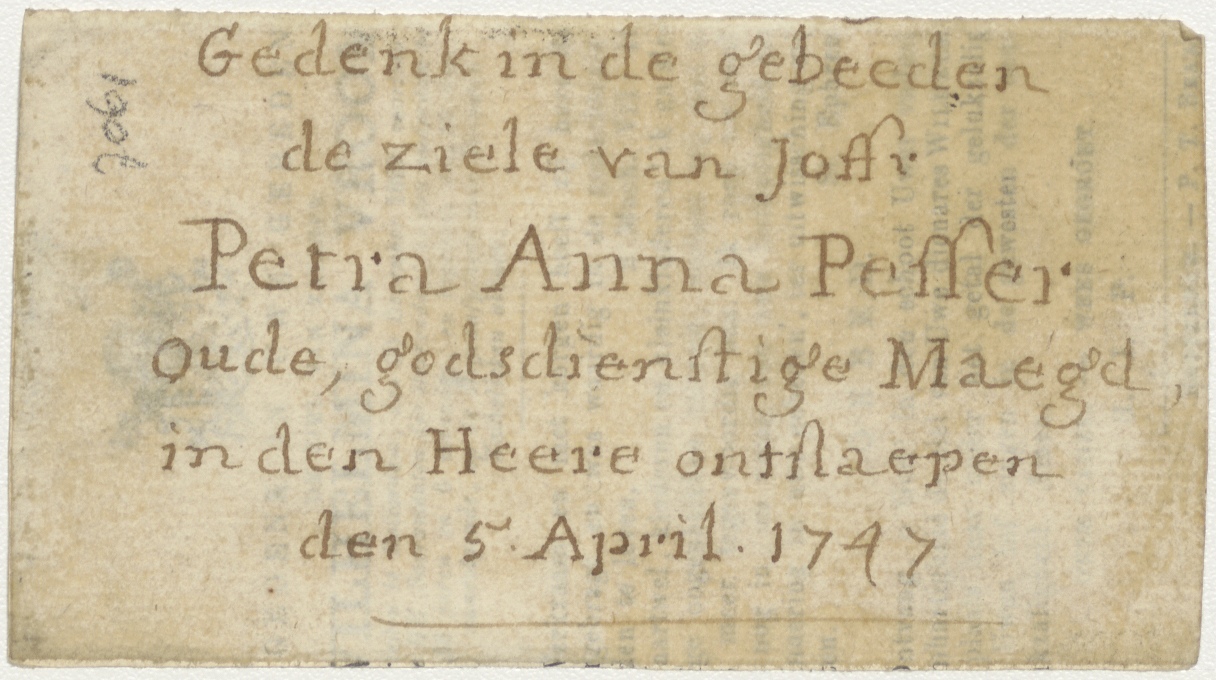 Gedenk in de gebeeden
de ziele van Joffr
Petra Anna Pesser
Oude, godsdienstige Maegd,
in den Heere ontslaepen
den 5. April. 1747